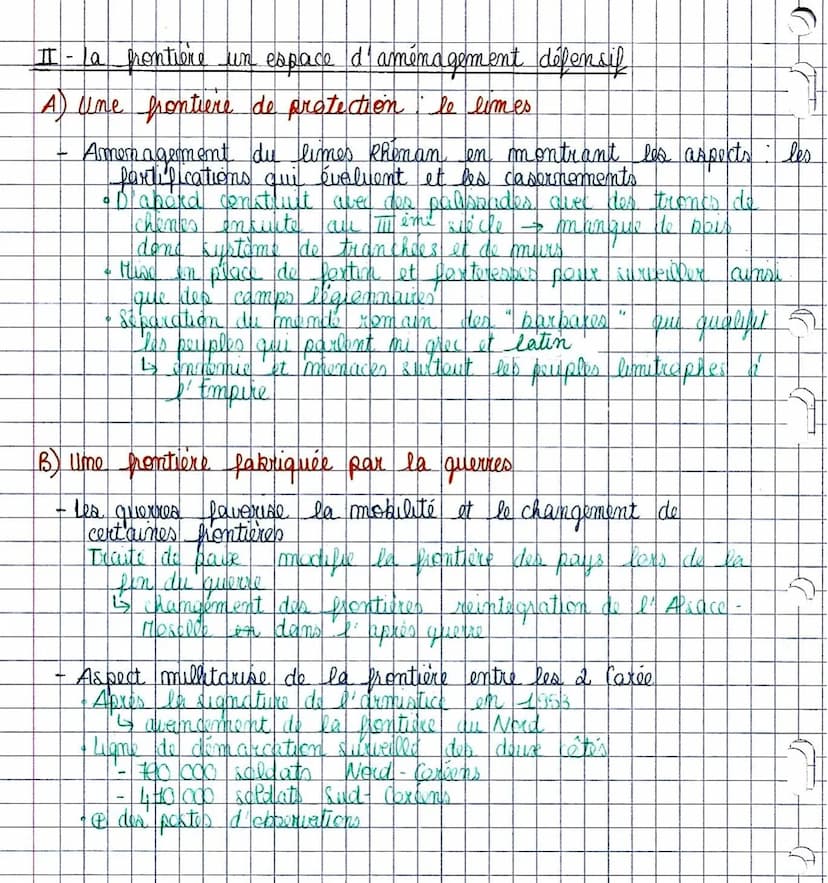 II - la frontière un espace d'aménagement défensif
A) Une frontière de protection : le limes
- Amenagement du limes Rhénan en montrant les aspects : les
fortifications qui évoluent et les casernements
• D'abord construit avec des palissades avec des troncs de
chênes ensuite au IIIème siècle → manque de bois
donc système de tranchées et de murs
• Mise en place de fortin et forteresses pour surveiller ainsi
que des camps légionnaires
• Séparation du monde romain des "barbares" qui qualifit
les peuples qui parlent ni grec et latin
↳ ennemie et menaces surtout les peuples limitraphes à
l'Empire
B) Une frontière fabriquée par la guerres
- Les guerres favorise la mobilité et le changement de
certaines frontières
Traité de paix modifie la frontière des pays lors de la
fin du guerre
↳ changement des frontières reintegration de l'Alsace-
Moselle en dans l'après guerre
- Aspect militarisé de la frontière entre les 2 Corée
• Après la signature de l'armistice en 1953
↳ avancement de la frontière au Nord
• Ligne de démarcation surveillé des deux côtés
- 000 soldats Nord-Coréens
- 410 000 soldats Sud-Coréens
• ⊕ des postes d'observations